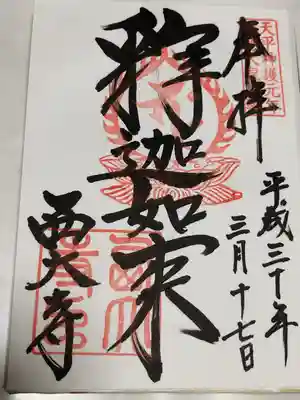 奉拝
平成三十年
三月十七日
釋迦如来
西大寺